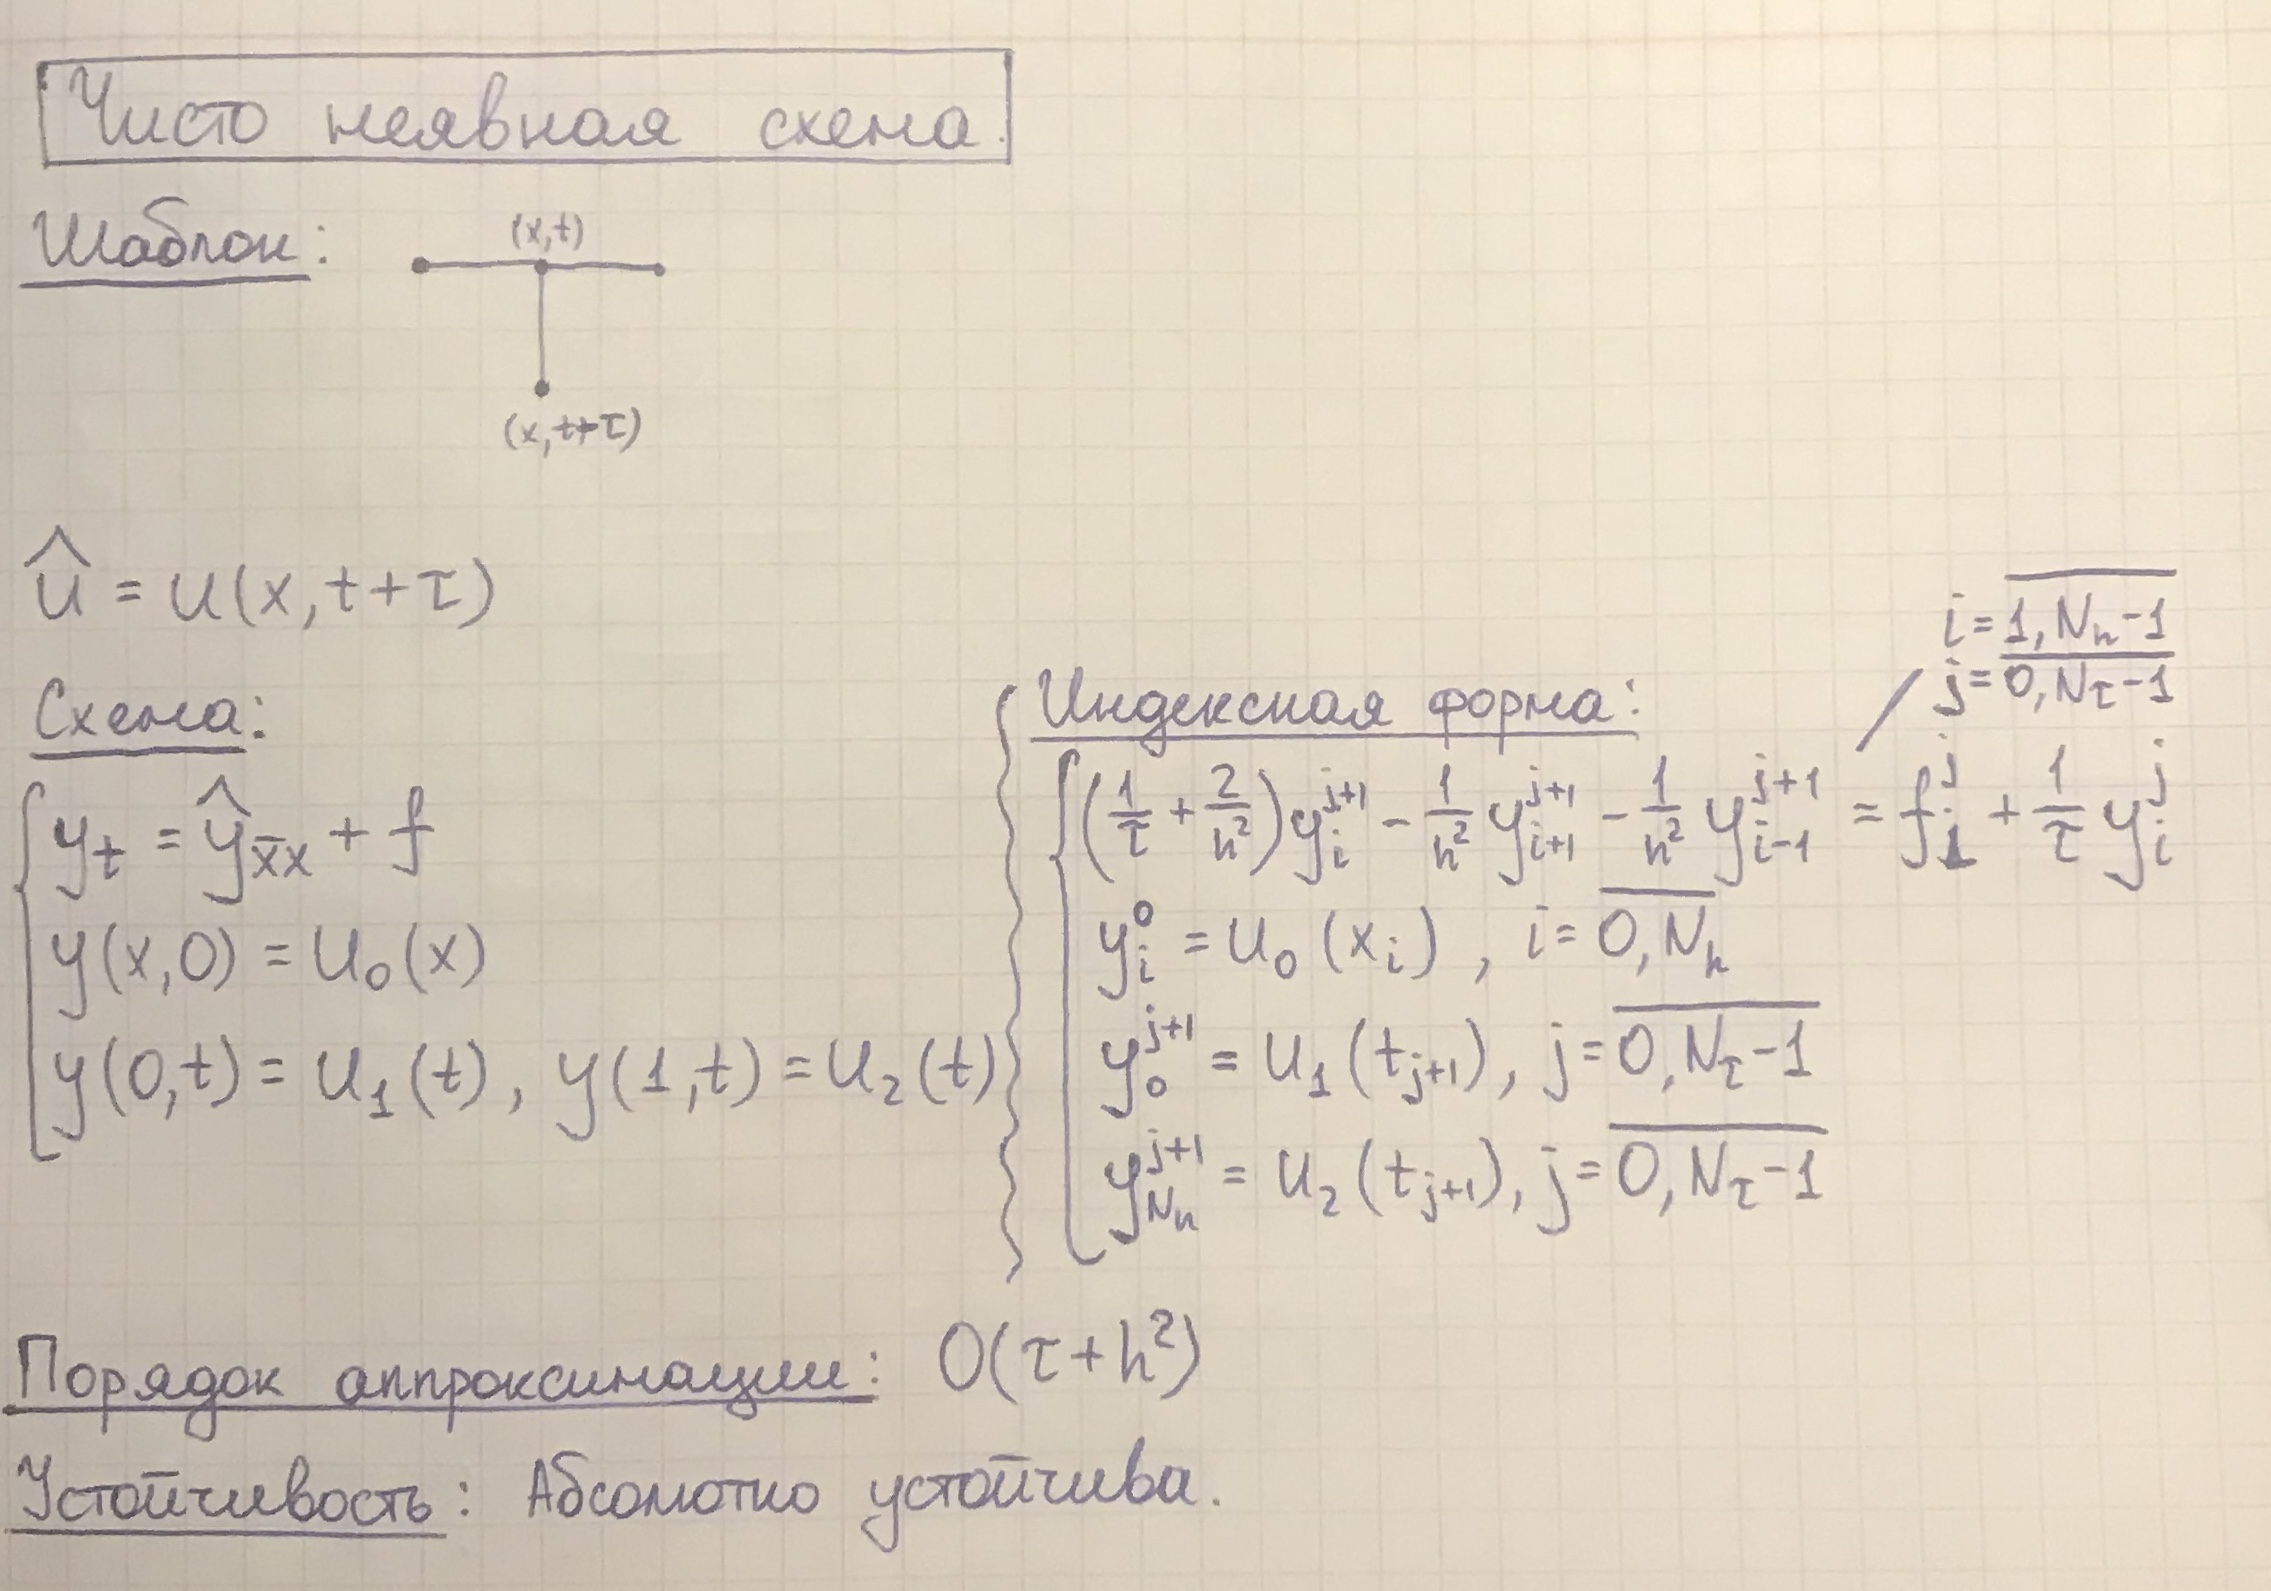 Чисто неявная схема.
Шаблон:
(x,t)
(x,t+τ)
û = u(x,t+τ)
Схема:
y_t = ŷ_{x̄x} + f
y(x,0) = u₀(x)
y(0,t) = u₁(t), y(1,t) = u₂(t)
Индексная форма:
i = \overline{1, N_h-1}
j = \overline{0, N_τ-1}
(1/τ + 2/h²) y_i^{j+1} - 1/h² y_{i+1}^{j+1} - 1/h² y_{i-1}^{j+1} = f_i^j + 1/τ y_i^j
y_i^0 = u₀(x_i), i = \overline{0, N_h}
y_0^{j+1} = u₁(t_{j+1}), j = \overline{0, N_τ-1}
y_{N_h}^{j+1} = u₂(t_{j+1}), j = \overline{0, N_τ-1}
Порядок аппроксимации: O(τ+h²)
Устойчивость: Абсолютно устойчива.